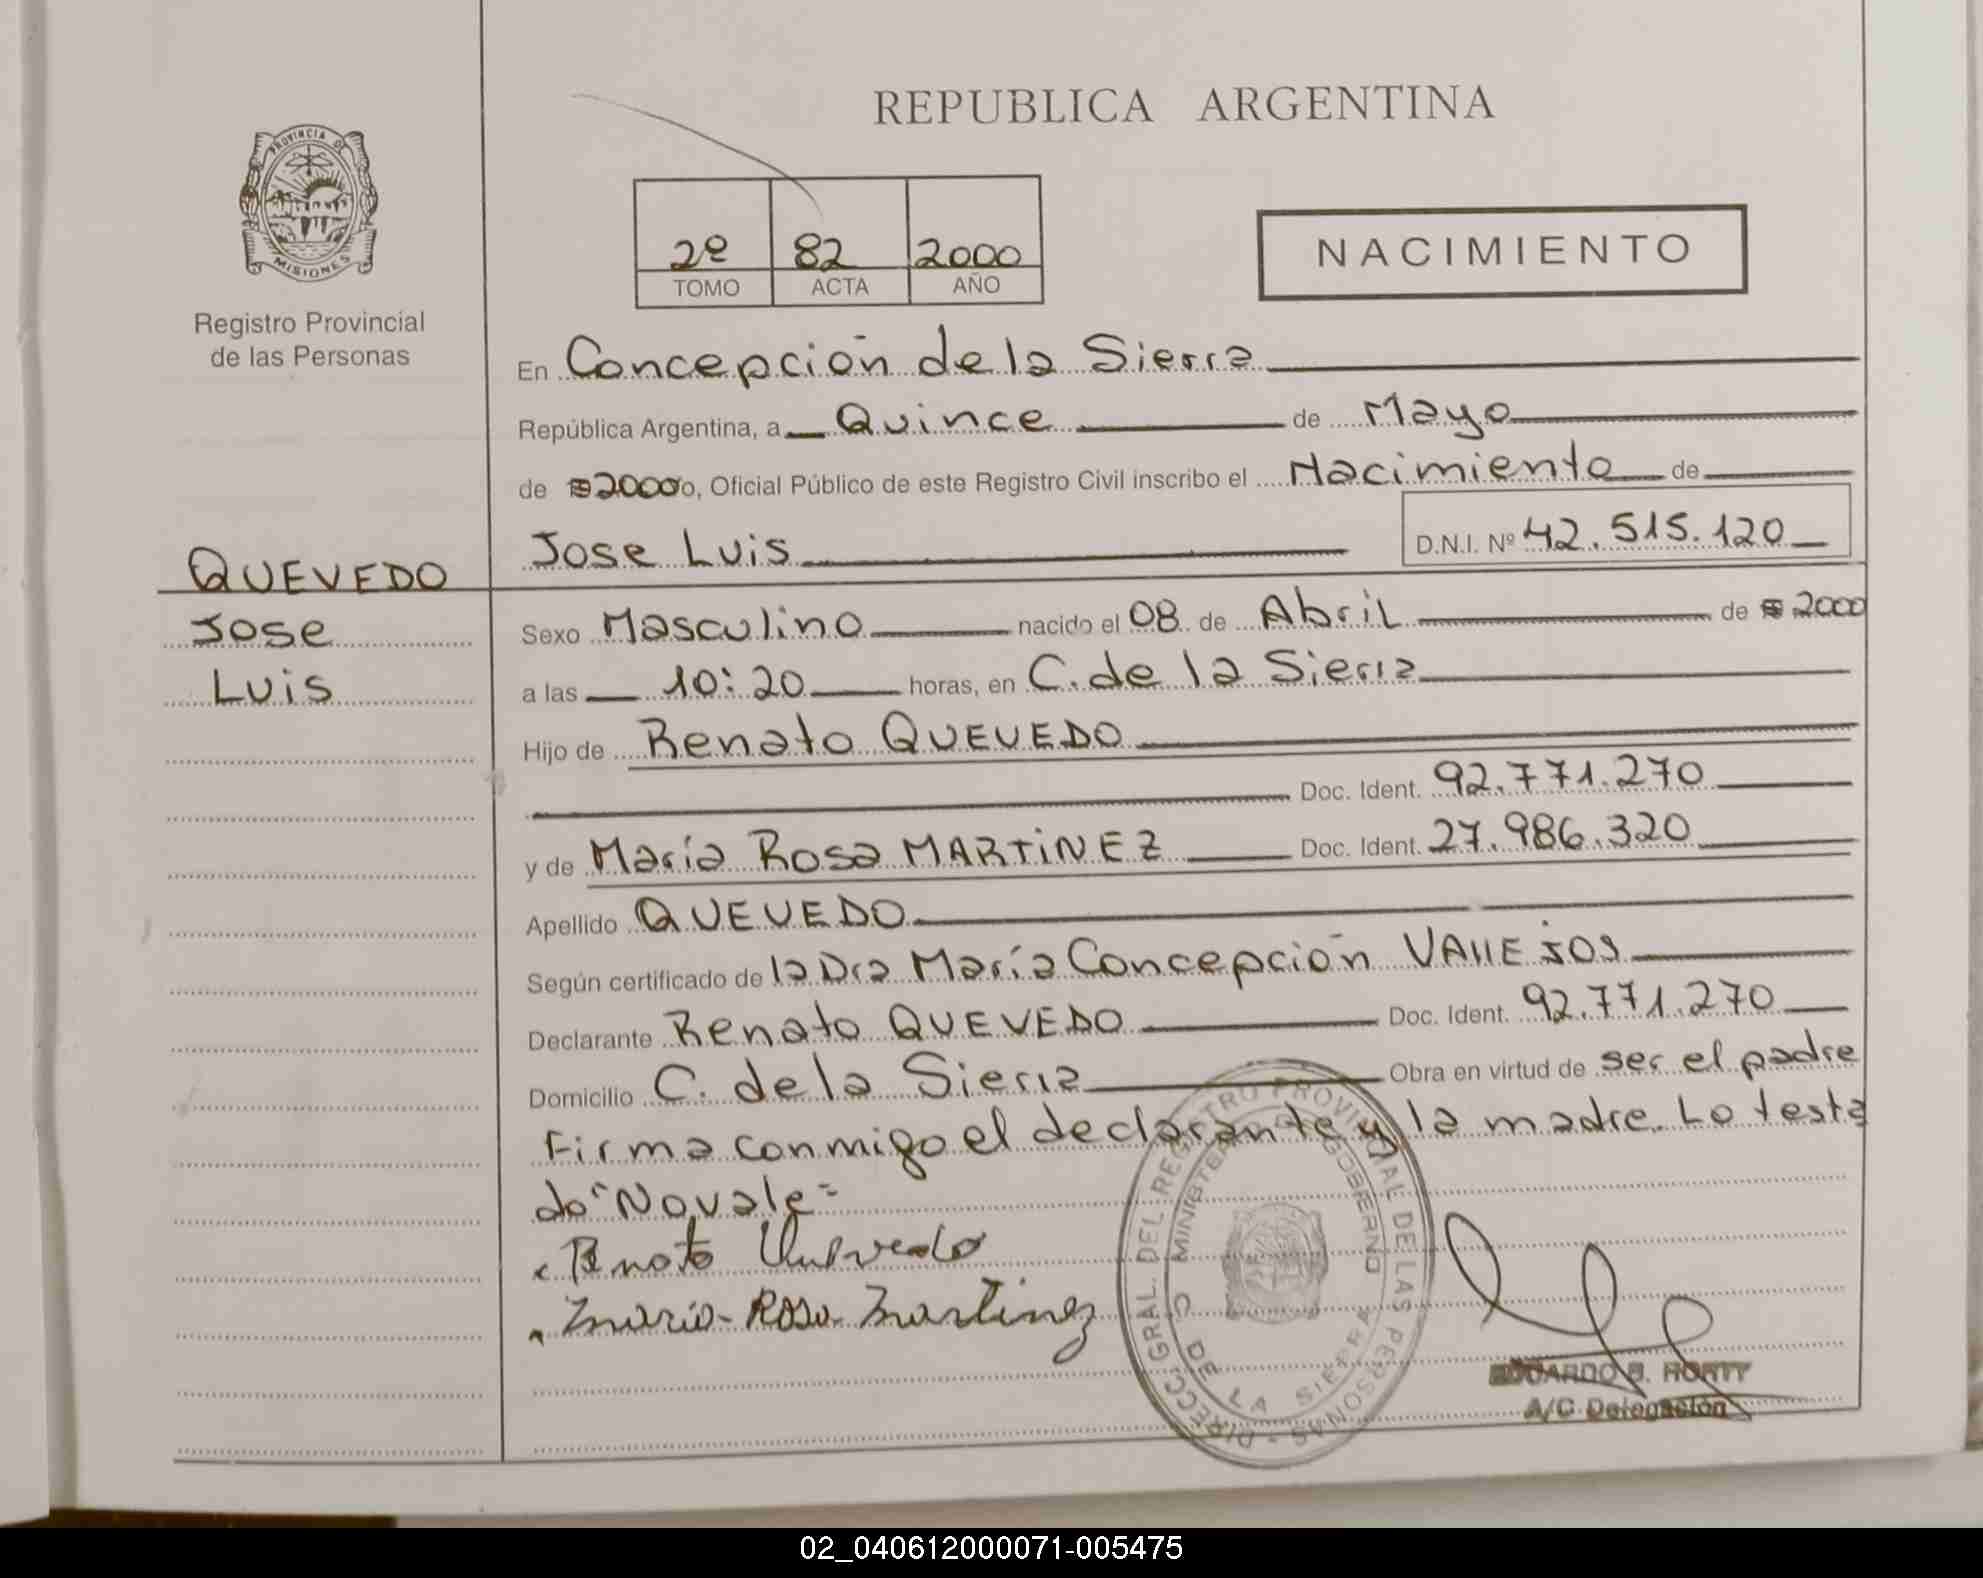 REPUBLICA ARGENTINA
PROVINCIA DE
MISIONES
Registro Provincial
de las Personas
2º 82 2000
TOMO ACTA AÑO
NACIMIENTO
En Concepción de la Sierra
República Argentina, a Quince de Mayo
de 2000, Oficial Público de este Registro Civil inscribo el Nacimiento de
Jose Luis D.N.I. Nº 42.515.120
QUEVEDO
Jose
Luis
Sexo Masculino nacido el 08 de Abril de 2000
a las 10:20 horas, en C. de la Sierra
Hijo de Renato QUEVEDO
Doc. Ident. 92.771.270
y de María Rosa MARTINEZ Doc. Ident. 27.986.320
Apellido QUEVEDO
Según certificado de la Dra María Concepción VAllEJOS
Declarante Renato QUEVEDO Doc. Ident. 92.771.270
Domicilio C. de la Sierra Obra en virtud de ser el padre
Firma conmigo el declarante y la madre. Lo testa
do "No vale"
Renato Quevedo
Maria Rosa Martinez
DIRECC. GRAL. DEL REGISTRO PROVINCIAL DE LAS PERSONAS
MINISTERIO GOBIERNO
C DE LA SIERRA
EDUARDO B. HORTY
A/C Delegación
02_040612000071-005475